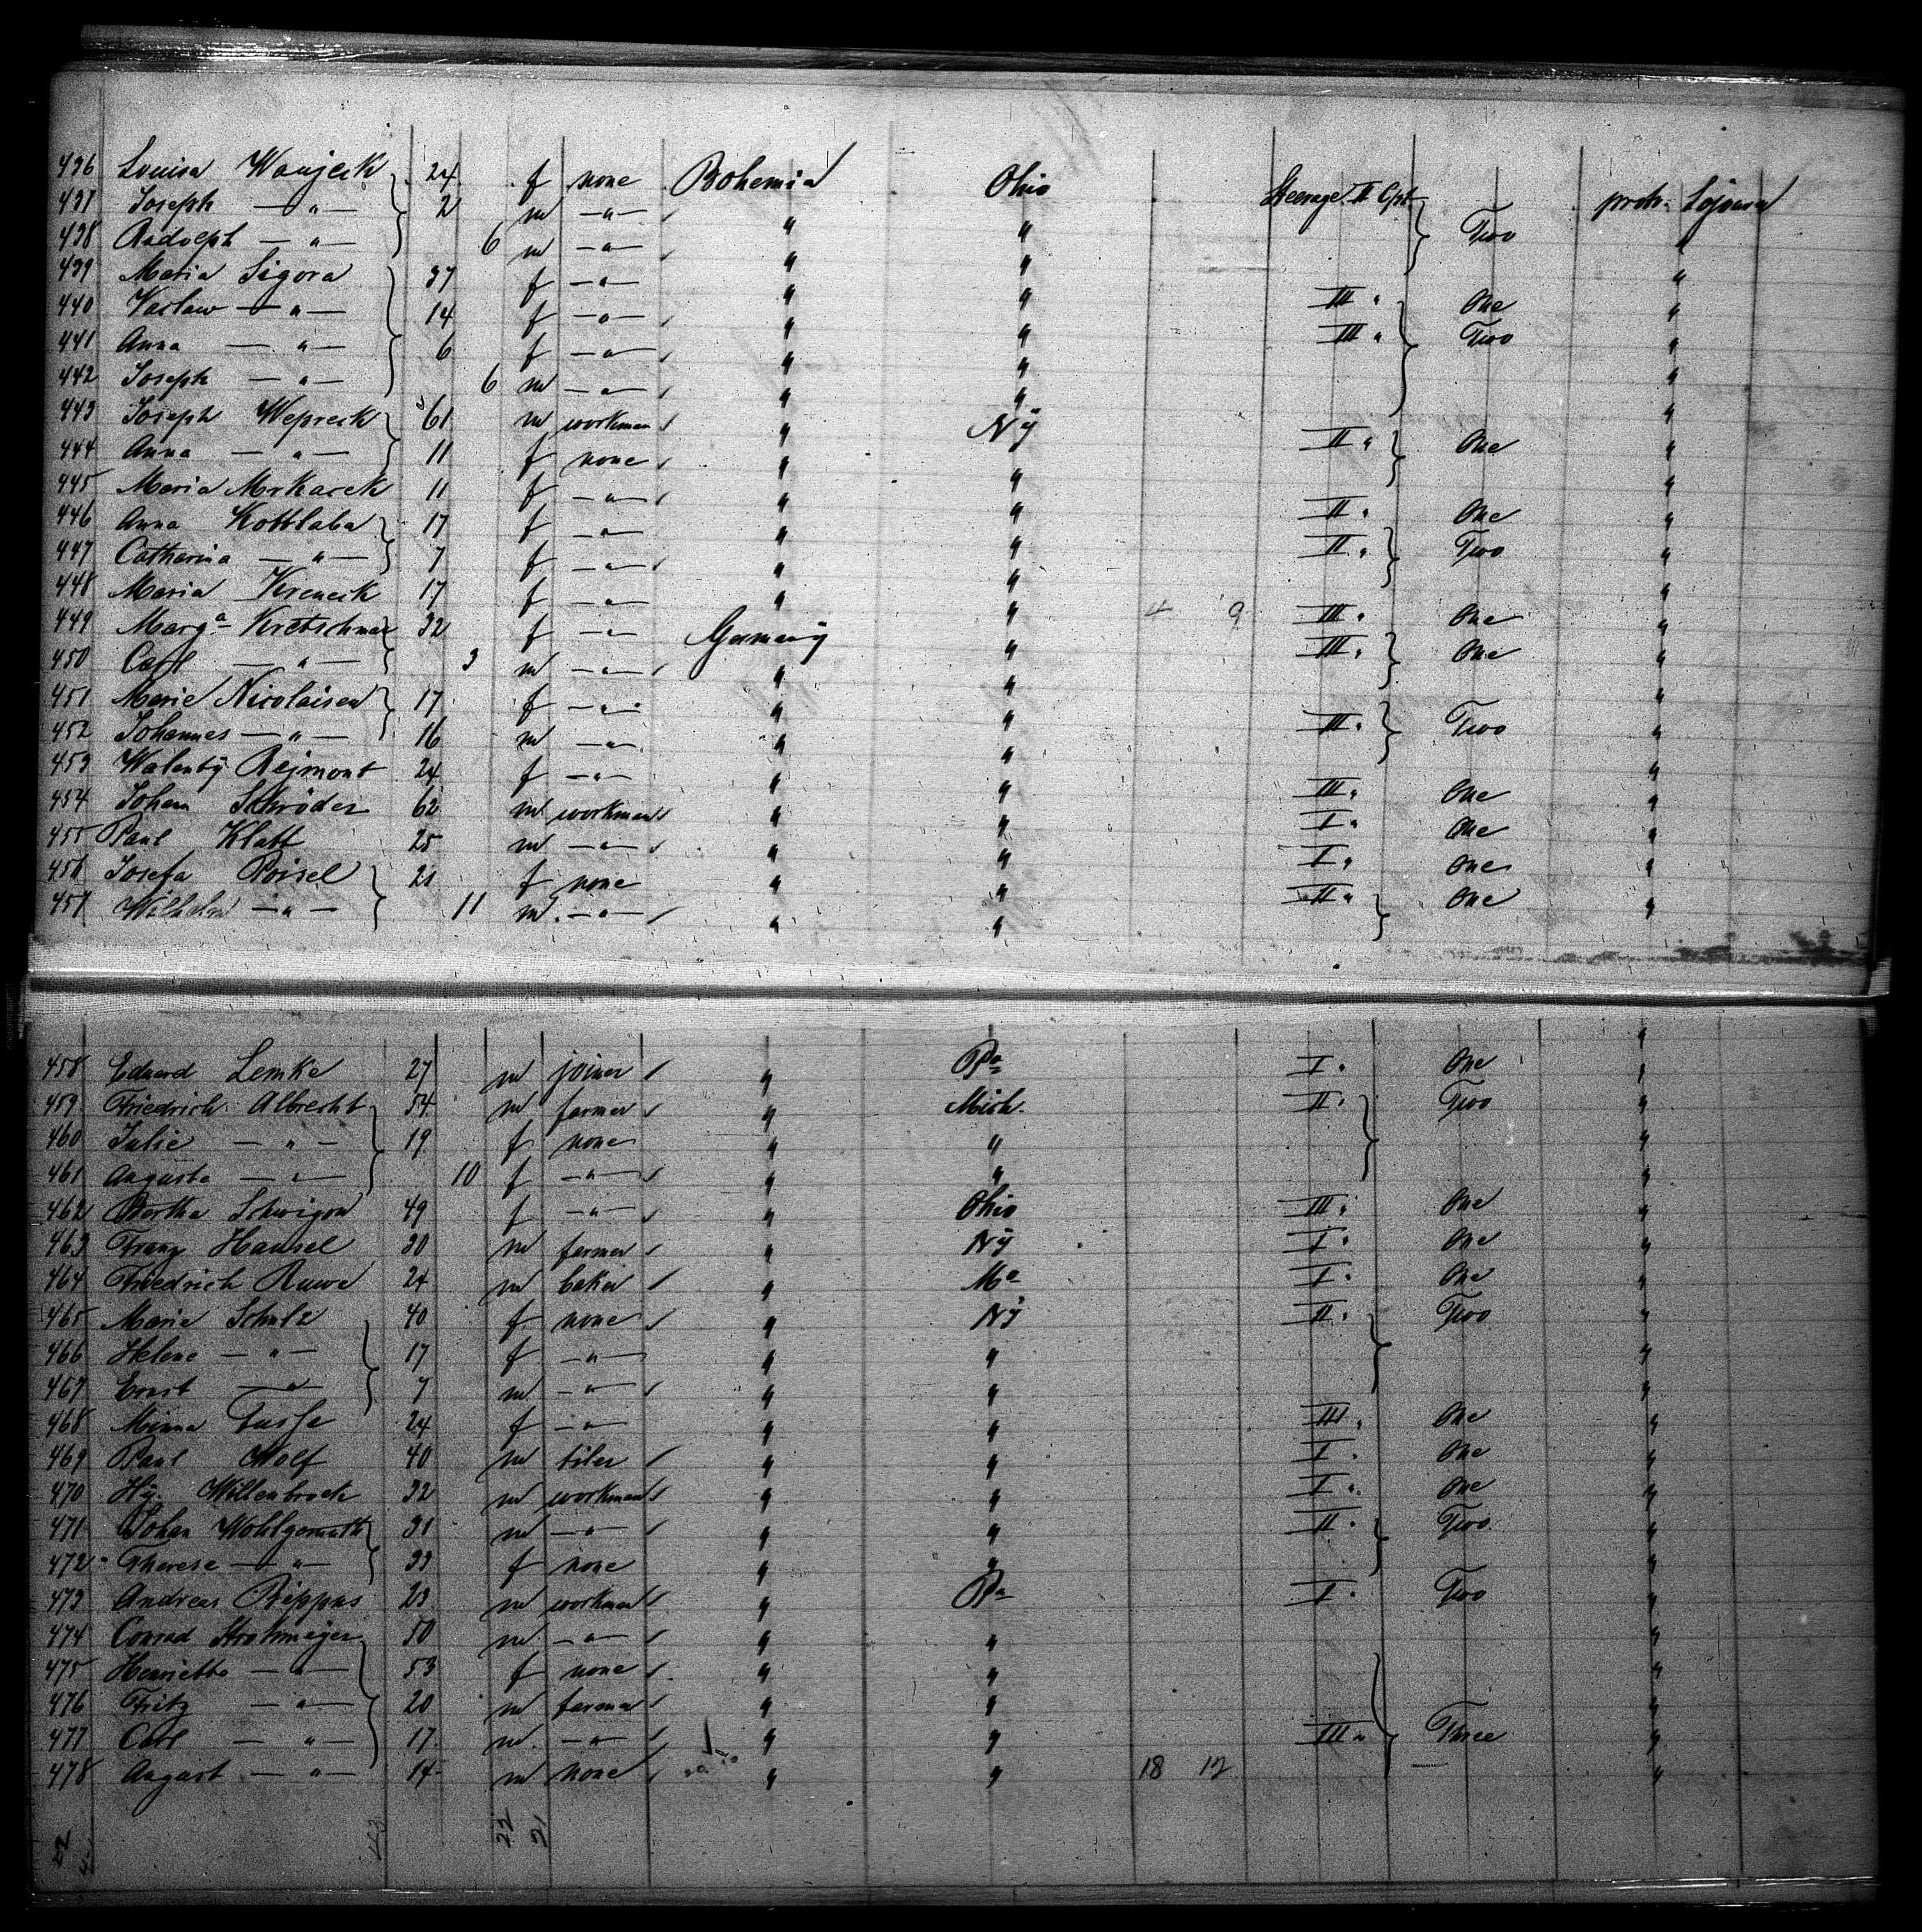 436 Louisa Wanjeck 24 f none Bohemia Ohio Steerage II Cpt Two prot. Sojourn
437 Joseph — " — 2 m — " — " " "
438 Rudolph — " — 6 m — " — " " "
439 Maria Sigora 37 f — " — " " III " One "
440 Vaclaw — " — 14 f — " — " " III " Two "
441 Anna — " — 6 f — " — " " "
442 Joseph — " — 6 m — " — " " "
443 Joseph Wepreck 61 m workman " Ny II " One "
444 Anna — " — 11 f none " " "
445 Maria Mrkacek 11 f — " — " " II " One "
446 Anna Kottlaba 17 f — " — " " II " Two "
447 Catharina — " — 7 f — " — " " "
448 Maria Kreneck 17 f — " — " " 4 9 III " One "
449 Marga Kretschmar 32 f — " — Germany " III " One "
450 Carl — " — 3 m — " — " " "
451 Marie Nicolaisen 17 f — " — " " III " Two "
452 Johannes — " — 16 m — " — " " "
453 Walenty Rejmont 24 f — " — " " III " One "
454 Johann Schröder 62 m workman " " I " One "
455 Paul Klatt 25 m — " — " " I " One "
456 Josefa Poisel 21 f none " " II " One "
457 Wilhelm — " — 11 m — " — " " "
458 Eduard Lemke 27 m joiner " Pa I " One "
459 Friedrich Albrecht 54 m farmer " Mich. II " Two "
460 Julie — " — 19 f none " " "
461 Auguste — " — 10 f — " — " " "
462 Bertha Schwigon 49 f — " — " Ohio III " One "
463 Franz Hansel 30 m farmer " Ny I " One "
464 Friedrich Ruwe 24 m baker " Mo I " One "
465 Marie Schulz 40 f none " Ny II " Two "
466 Helene — " — 17 f — " — " " "
467 Ernst — " — 7 m — " — " " "
468 Minna 24 f — " — " " III " One "
469 Paul Wolf 40 m tiler " " I " One "
470 Hy. Willenbrock 32 m workman " " I " One "
471 Johan Wohlgemuth 31 m — " — " " II " Two "
472 Therese — " — 33 f none " " "
473 Andreas Rippus 23 m workman " Pa I " Two "
474 Conrad Strohmeyer 50 m — " — " " "
475 Henriette — " — 53 f none " " "
476 Fritz — " — 20 m farmer " " "
477 Carl — " — 17 m — " — " " III " Three "
478 August — " — 14 m none " " 18 12 "
22 21